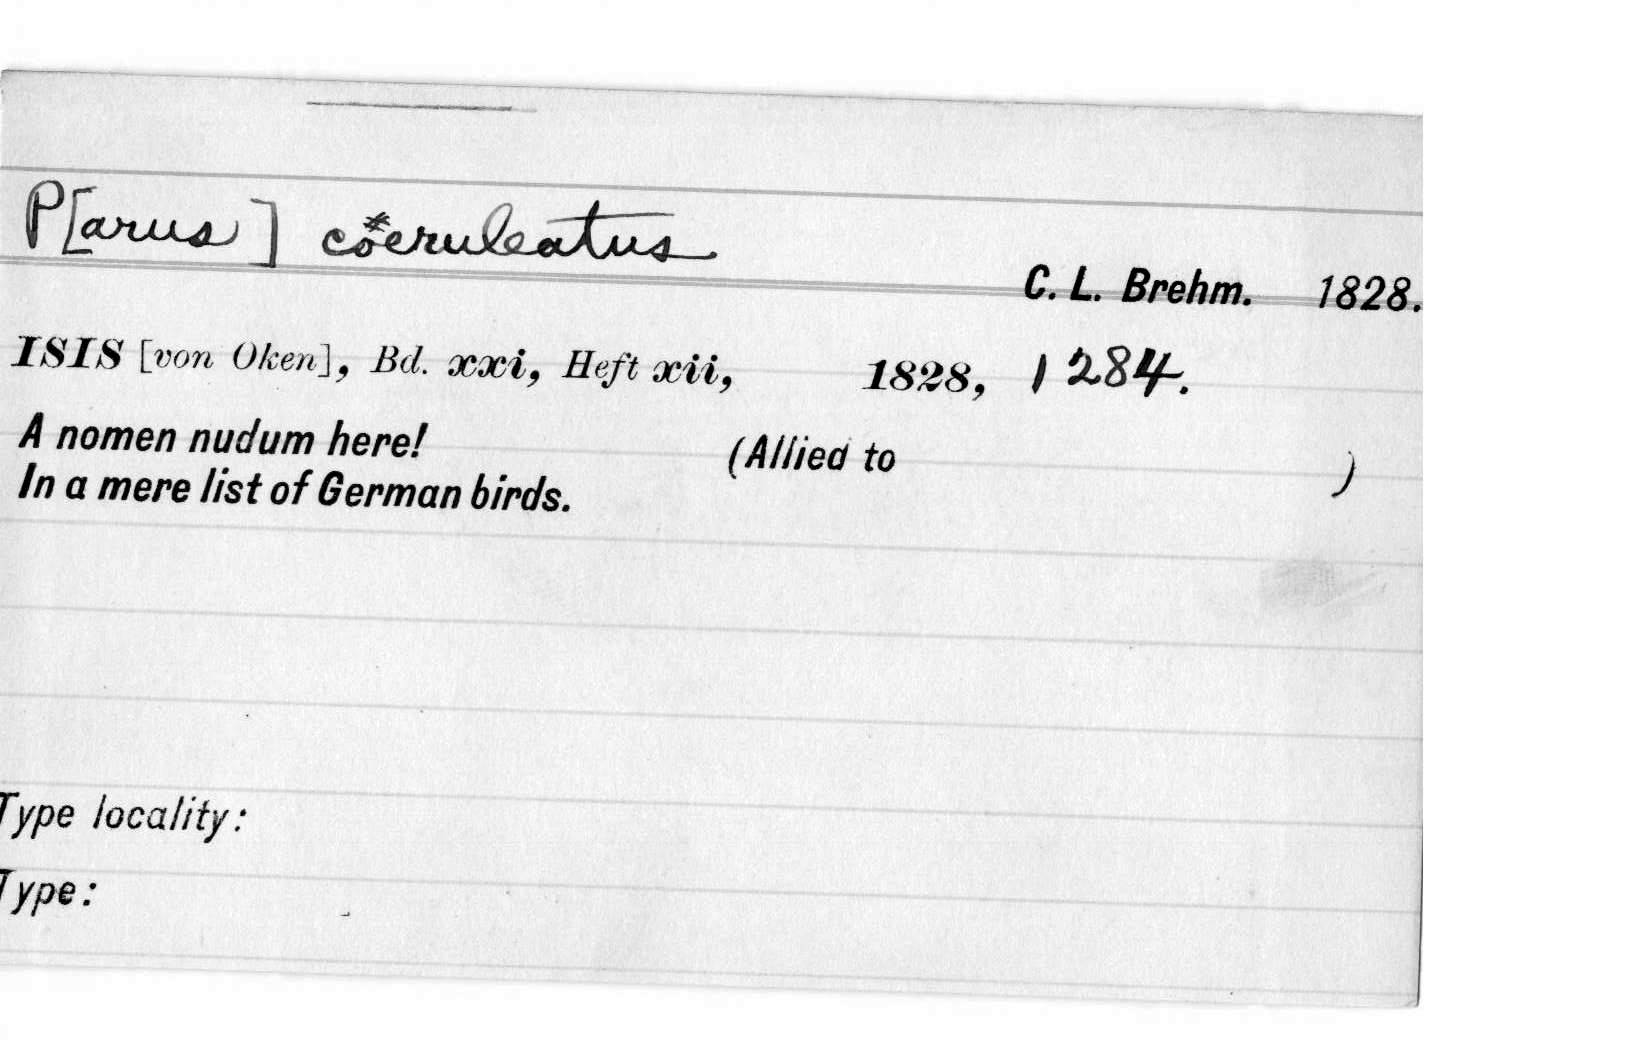 P[arus] coeruleatus
C. L. Brehm. 1828.
ISIS [von Oken], Bd. xxi, Heft xii, 1828, 1284.
A nomen nudum here! (Allied to )
In a mere list of German birds.
Type locality:
Type: